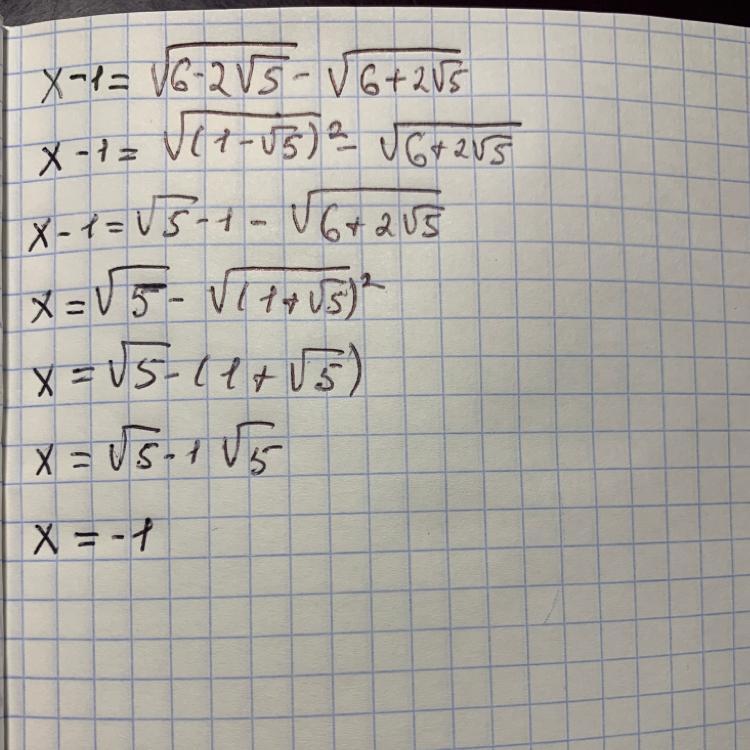 x-1=√(6-2√5)-√(6+2√5)
x-1=√(1-√5)²-√(6+2√5)
x-1=√5-1-√(6+2√5)
x=√5-√(1+√5)²
x=√5-(1+√5)
x=√5-1√5
x=-1